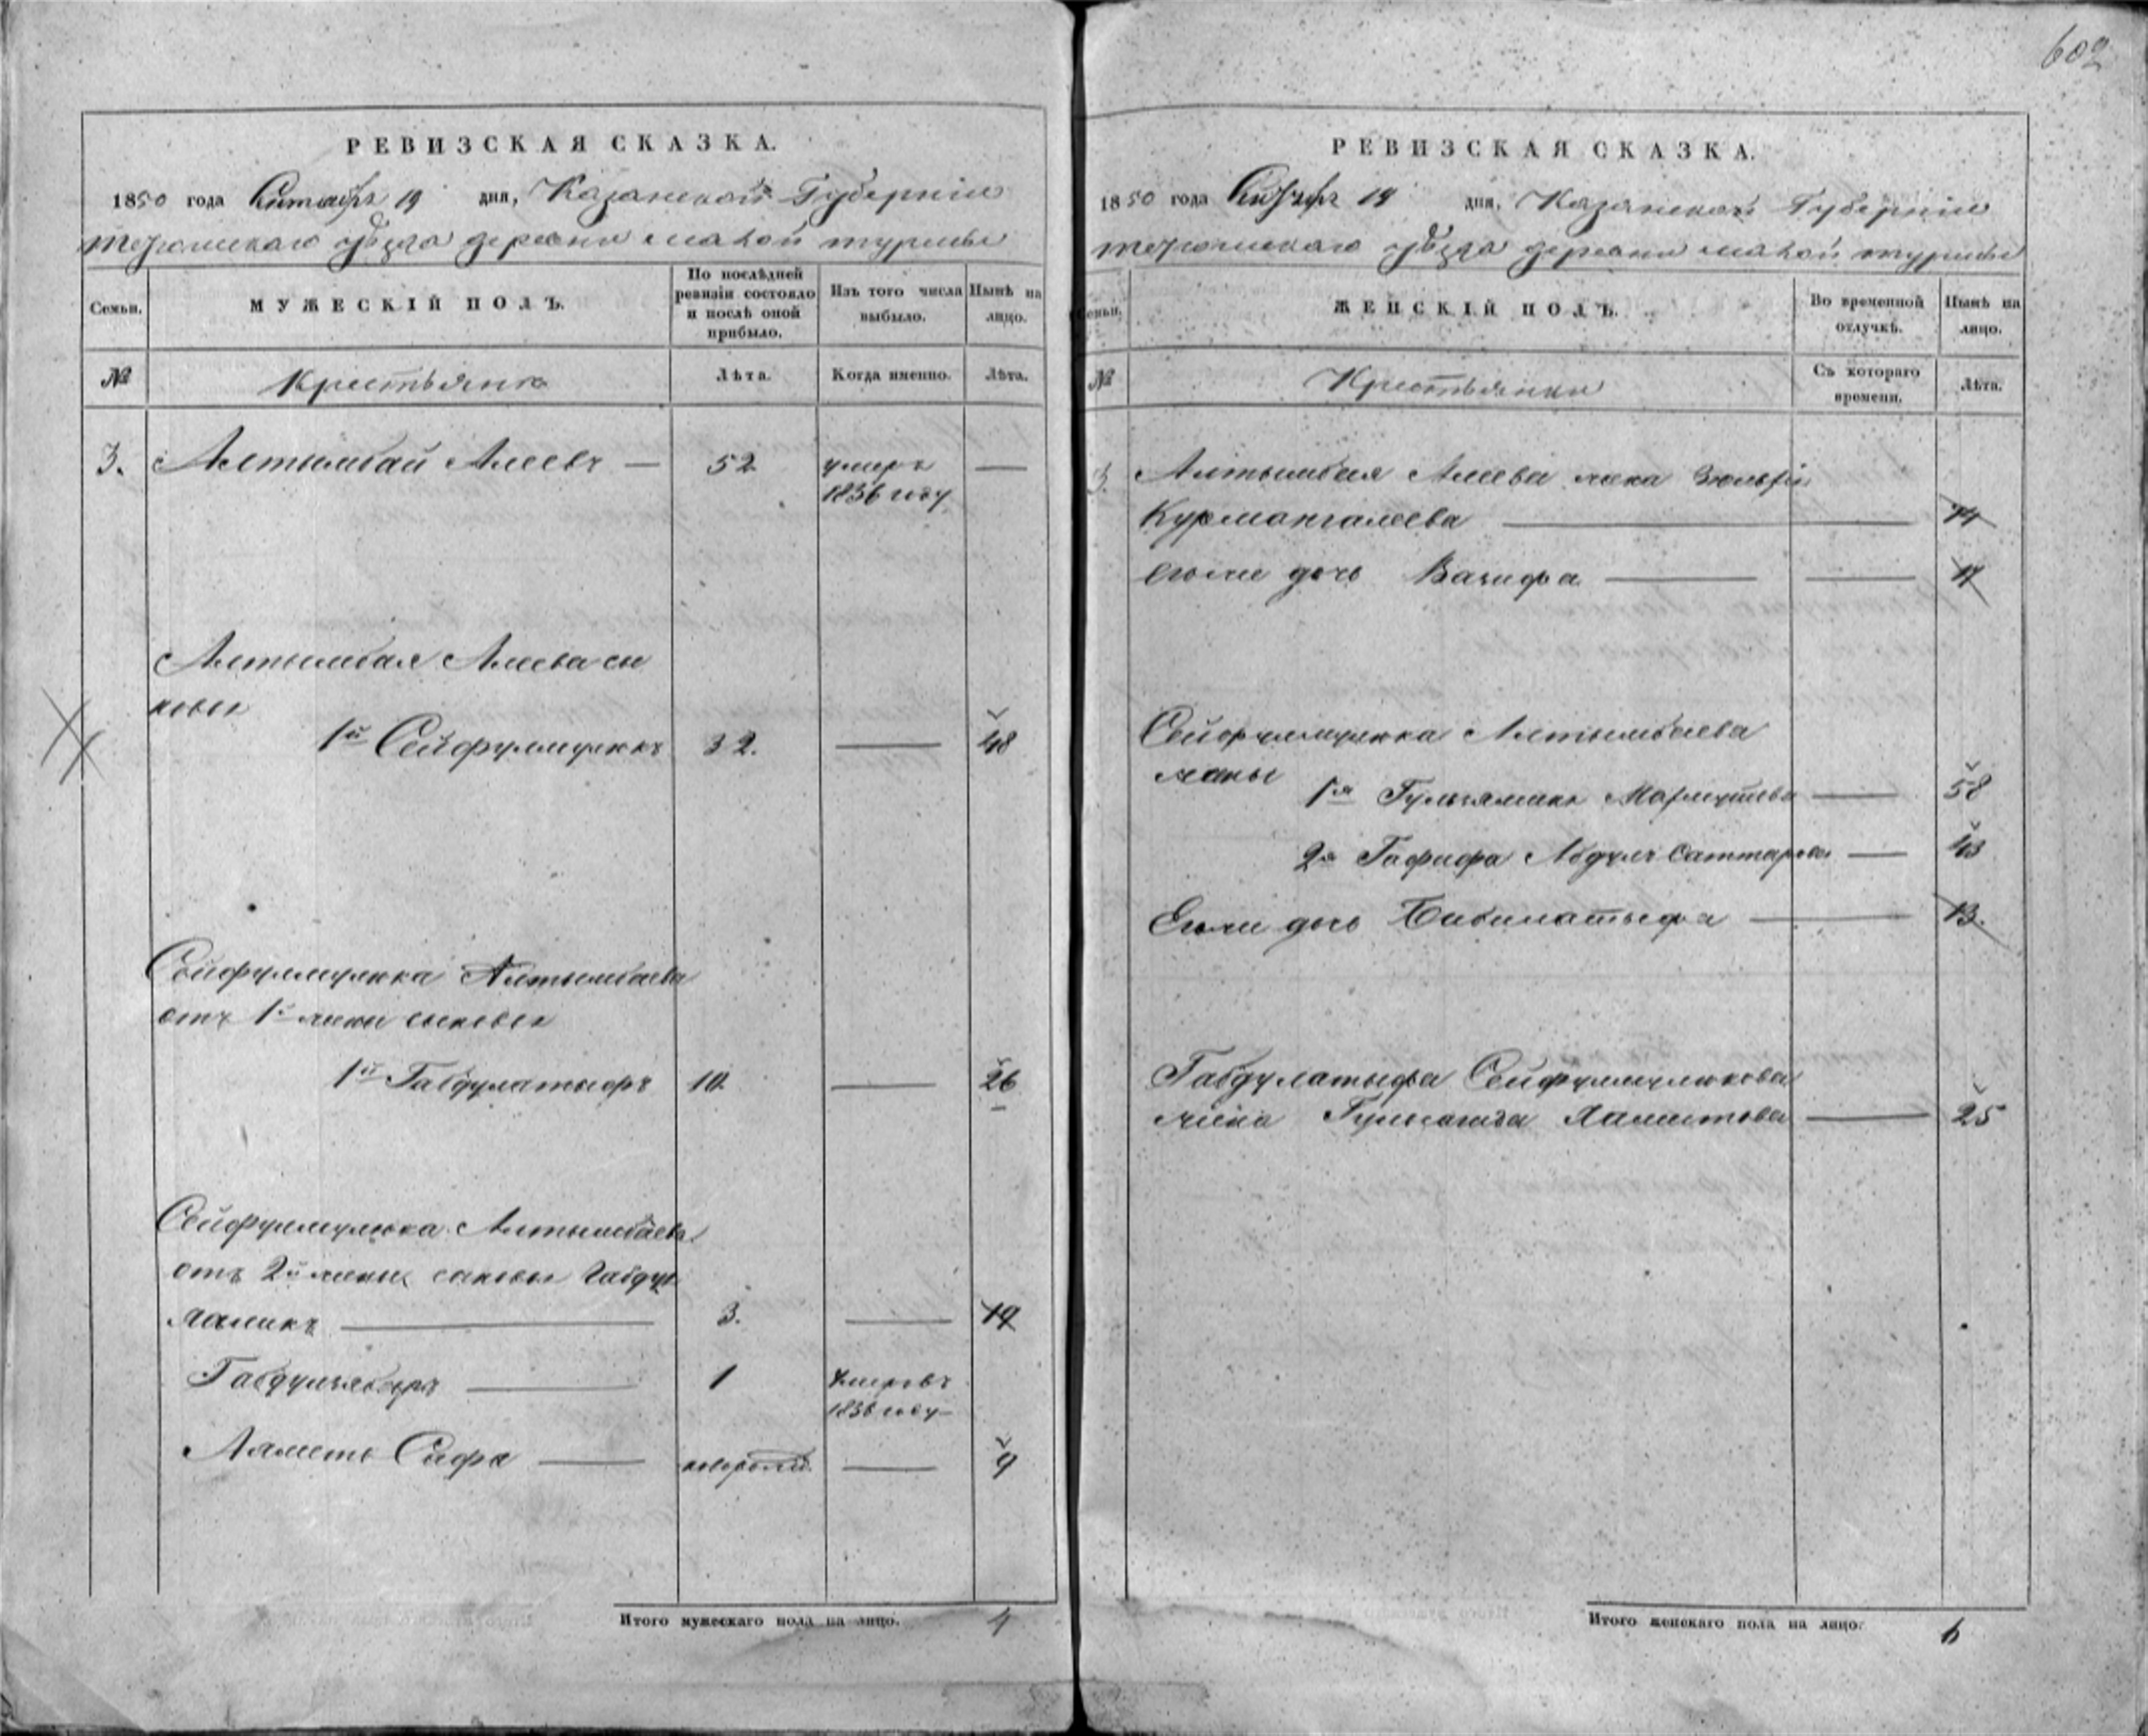 602
РЕВИЗСКАЯ СКАЗКА.
1850 года Сентября 19 дня, Казанской Губерніи
тетюшскаго уѣзда деревни малой турмы
Семьи.
МУЖЕСКІЙ ПОЛЪ.
По послѣдней ревизіи состояло и послѣ оной прибыло.
Изъ того числа выбыло.
Нынѣ на лицо.
№
Крестьяне
Лѣта.
Когда именно.
Лѣта.
3. Алтымбай Алеевъ — 52 умеръ —
1836 году
Алтымбая Алеева сы
новья
1й Сейфулмулюкъ 32. — 48
Сейфулмулюка Алтымбаева
отъ 1й жены сыновья
1й Габдулатыфъ 10. — 26
Сейфулмулюка Алтымбаева
отъ 2й жены сыновья Габдул
маликъ — 3. — 19
— 1 умеръ въ
1836 году
Ахметь Сафа — новорожд. — 9
Итого мужескаго пола на лицо. 4
РЕВИЗСКАЯ СКАЗКА.
1850 года 19 дня, Казанской Губерніи
тетюшскаго уѣзда деревни малой турмы
Семьи.
ЖЕНСКІЙ ПОЛЪ.
Во временной отлучкѣ.
Нынѣ на лицо.
№
Крестьянки
Съ котораго времени.
Лѣта.
3. Алтымбая Алеева жена
Курмангалеева — 74
его же дочь Вазифа — — 17
Сейфулмулюка Алтымбаева
жены
1я — 58
2я Гафифа Абдулъ Саттарова — 43
Его же дочь Бибилатыфа — 13.
Габдулатыфа Сейфулмулюкова
жена — 25
Итого женскаго пола на лицо: 6